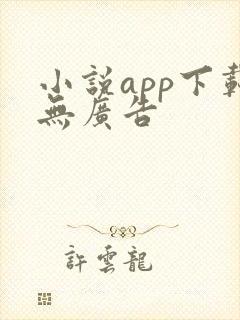 小說app下載
無廣告
許雲龍